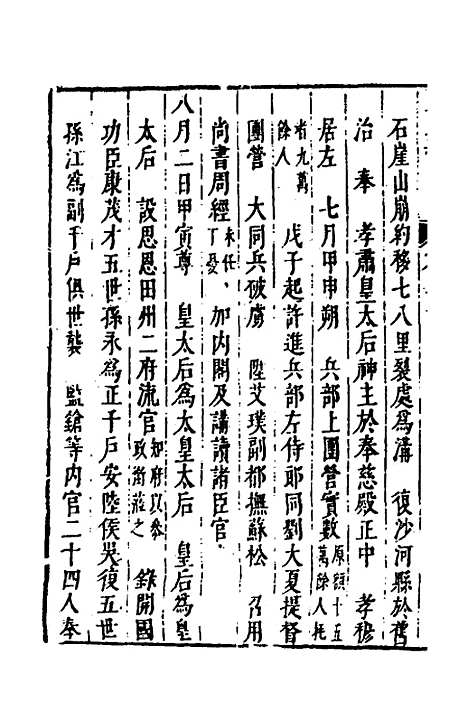 石崖山崩約移七八里裂處爲溝　復沙河縣於舊
治　奉　孝肅皇太后神主於奉慈殿正中　孝穆
居左　七月甲申朔　兵部上團營實數原額十五萬餘人耗
者九萬餘人　戊子起許進兵部左侍郎同劉大夏提督
團營　大同兵破虜　陞艾璞副都撫蘇松　召用
尚書周經未任丁憂、加内閣及講讀諸臣官
八月二日甲寅尊　皇太后爲太皇太后　皇后爲皇
太后　設思恩田州二府流官知府以參政銜莅之　錄開國
功臣康茂才五世孫永爲正千戶安陸侯吳復五世
孫江爲副千戶俱世襲　監鎗等内官二十四人奉